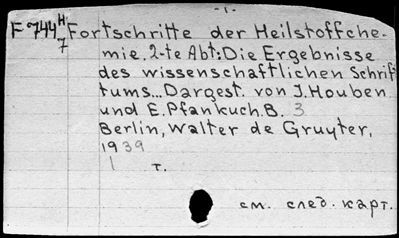 -1-
F 744 H/7 Fortschritte der Heilstoffche-
mie. 2-te Abt: Die Ergebnisse
des wissenschaftlichen Schrift
tums... Dargest. von J. Houben
und E. Pfankuch. B. 3
Berlin, Walter de Gruyter,
1939
1 т.
см. след. карт.